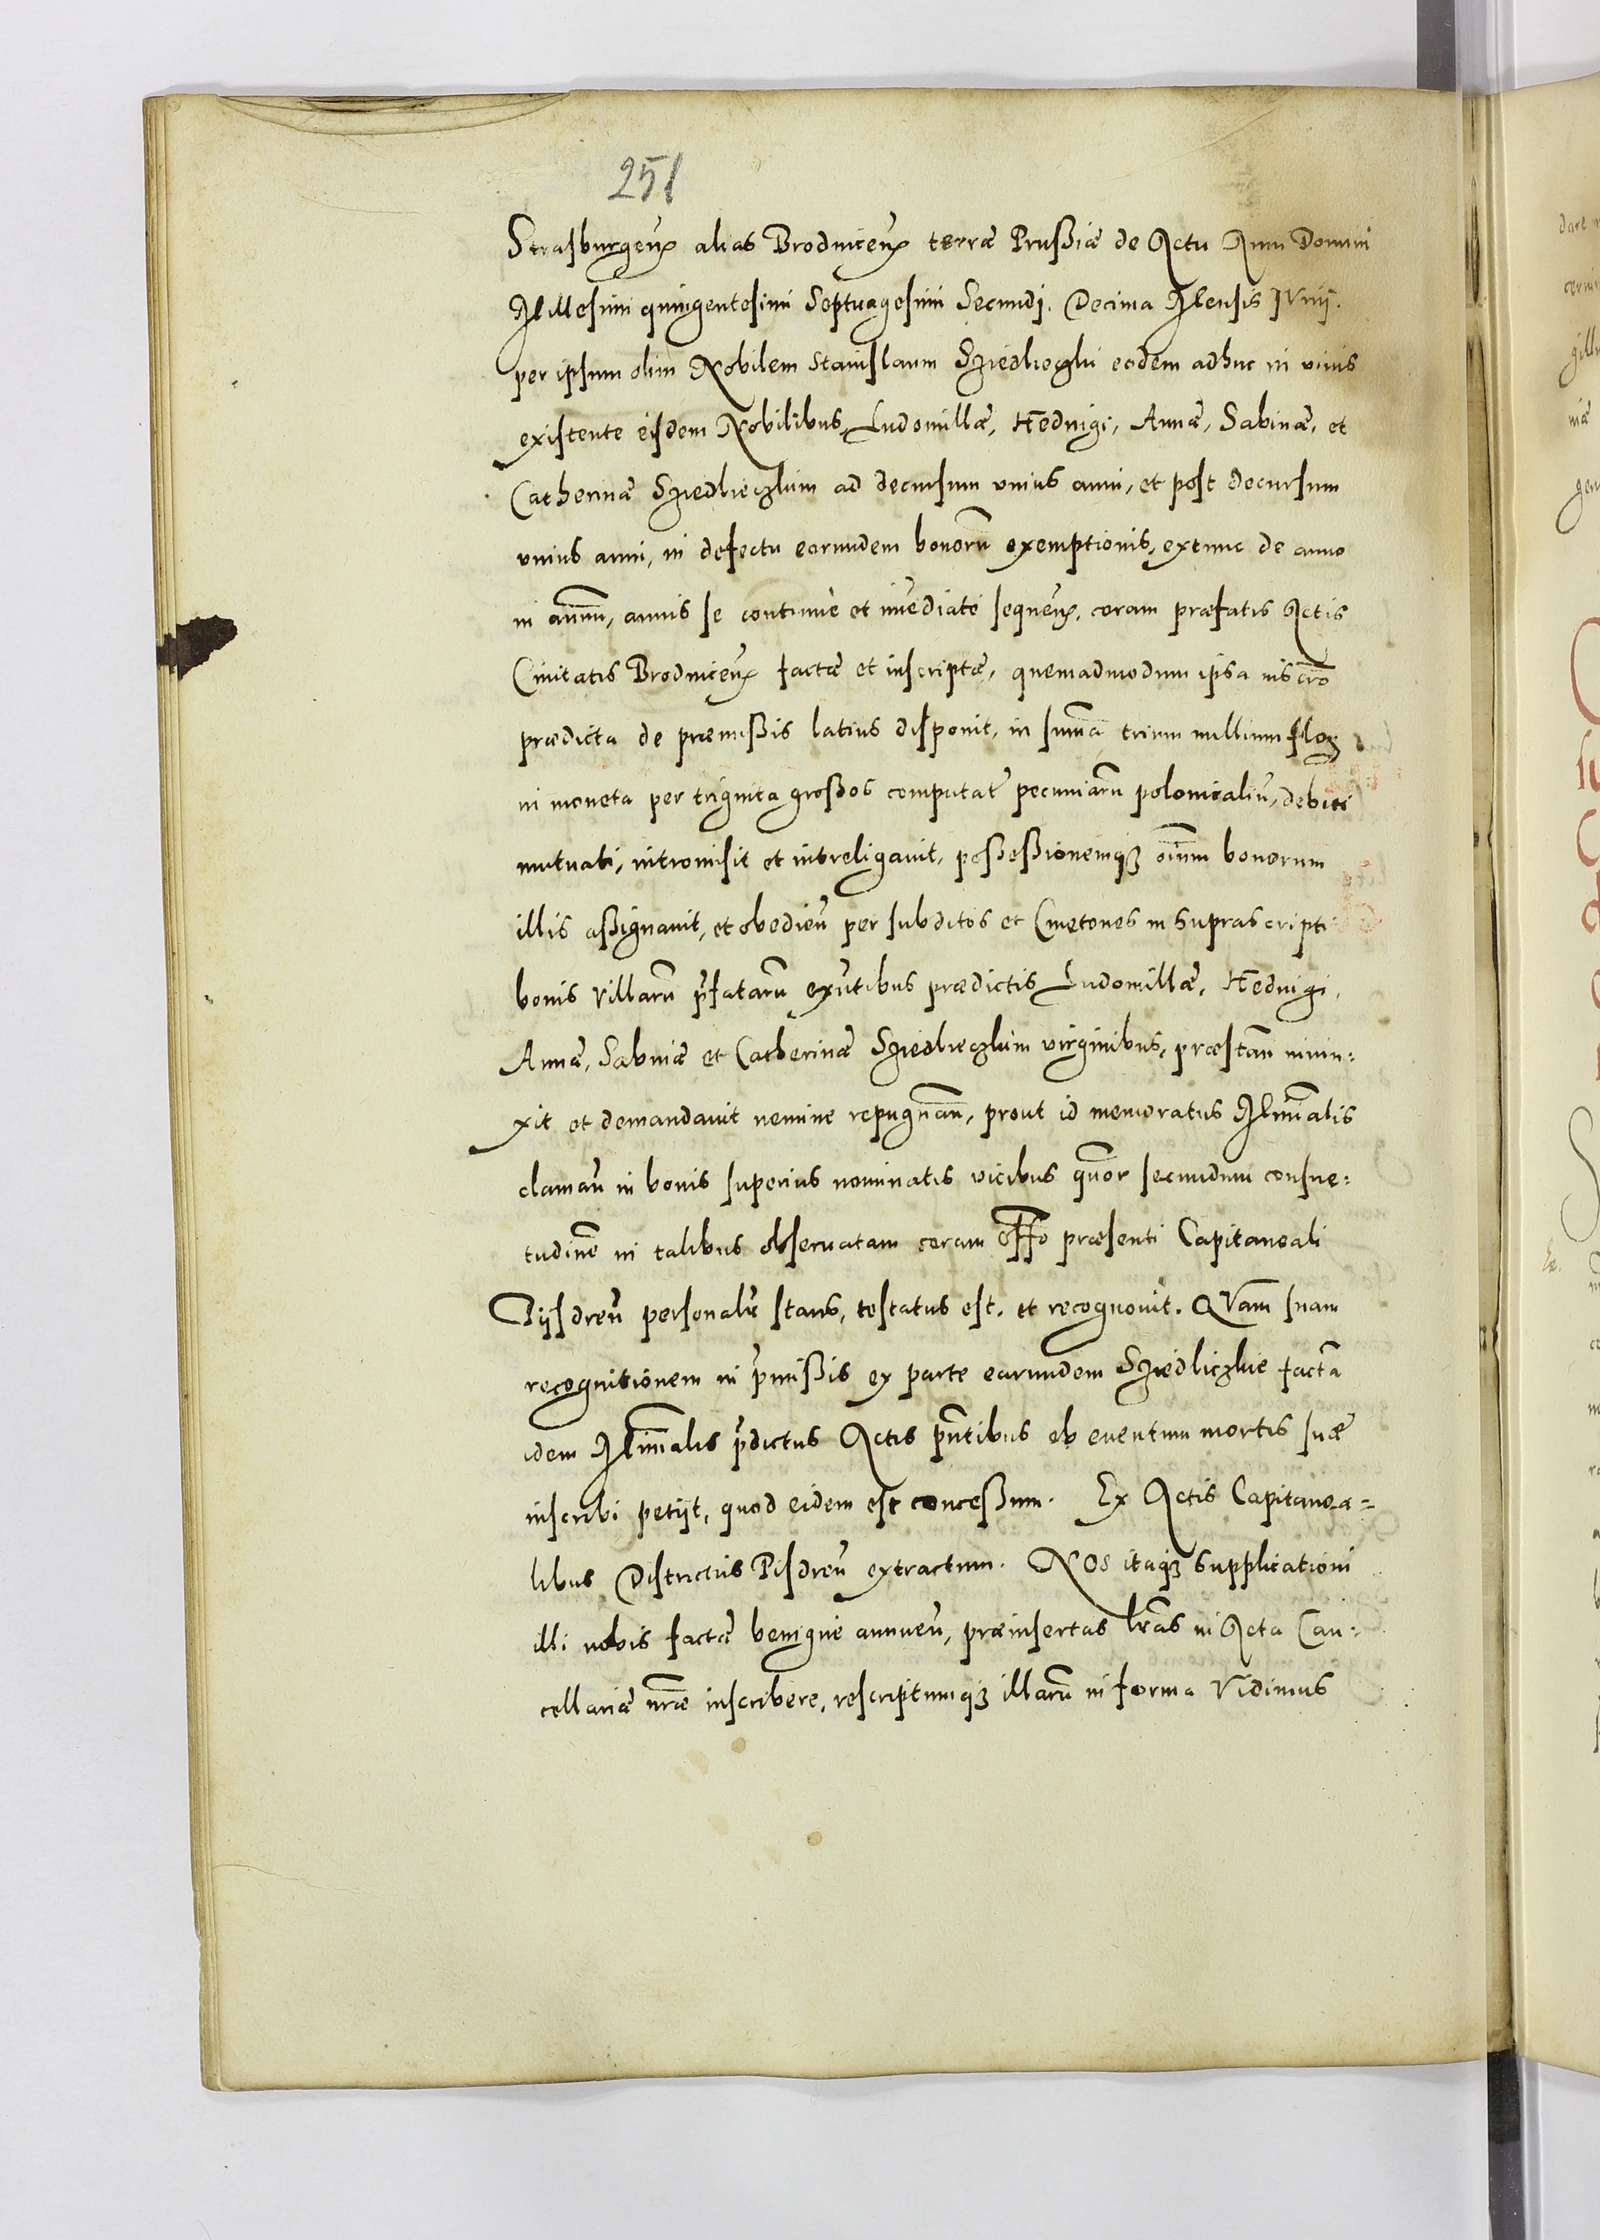 251
Strasburgeñ alias Brodniceñ terræ Prußiæ de Actu Anni Domini
Millesimi quingentesimi Septuagesimi Secundi. Decima Mensis IVnij.
per ipsum olim Nobilem Stanislaum Sziedlieczki eodem adhuc in viuis
existente eisdem Nobilibus, Ludomillæ, Heduigi, Annæ, Sabinæ, et
Catherinæ Sziedlieczkim ad decursum vnius anni, et post decursum
vnius anni, in defectu earundem bonorū exemptionis, extunc de anno
in annū, annis se continuè et im̄ediatè sequeñ, coram præfatis Actis
Ciuitatis Brodniceñ factæ et inscriptæ, quemadmodum ipsa inscr̄o
prædicta de præmißis latius disponit, in sum̄a trium millium floꝝ
in moneta per triginta großos computat̄ pecuniarū polonicaliū, debiti
mutuati, intromisit et intreligauit, poßeßionemqꝫ oīum bonorum
illis aßignauit, et obedieñ per subditos et Cmetones in suprascripti
bonis Villarū p̄fatarū exn̄tibus prædictis Ludomillæ, Heduigi,
Annæ, Sabinæ et Catherinæ Sziedlieczkim virginibus, præstañ iniun:
xit et demandauit nemine repugnañ, prout id memoratus Mīn̄alis
clamañ in bonis superius nominatis vicibus quat̄uor secundum consue:
tudinē in talibus obseruatam coram off̄o præsenti Capitaneali
Pijsdreñ personalr̄ stans, testatus est. et recognouit. QVam suam
recognitionem in p̄mißis ex parte earundem Sziedliczkie factā
idem Mīn̄alis p̄dictus Actis pn̄tibus ob euentum mortis suæ
inscribi petijt, quod eidem est conceßum. Ex Actis Capitanea=
libus Districtus Pisdreñ extractum. NOs itaqꝫ supplicationi
illi nobis factæ benignè annueñ, præinsertas lr̄as in Acta Can:
cellariæ nr̄æ inscribere, rescriptumqꝫ illarū in forma Vidimus